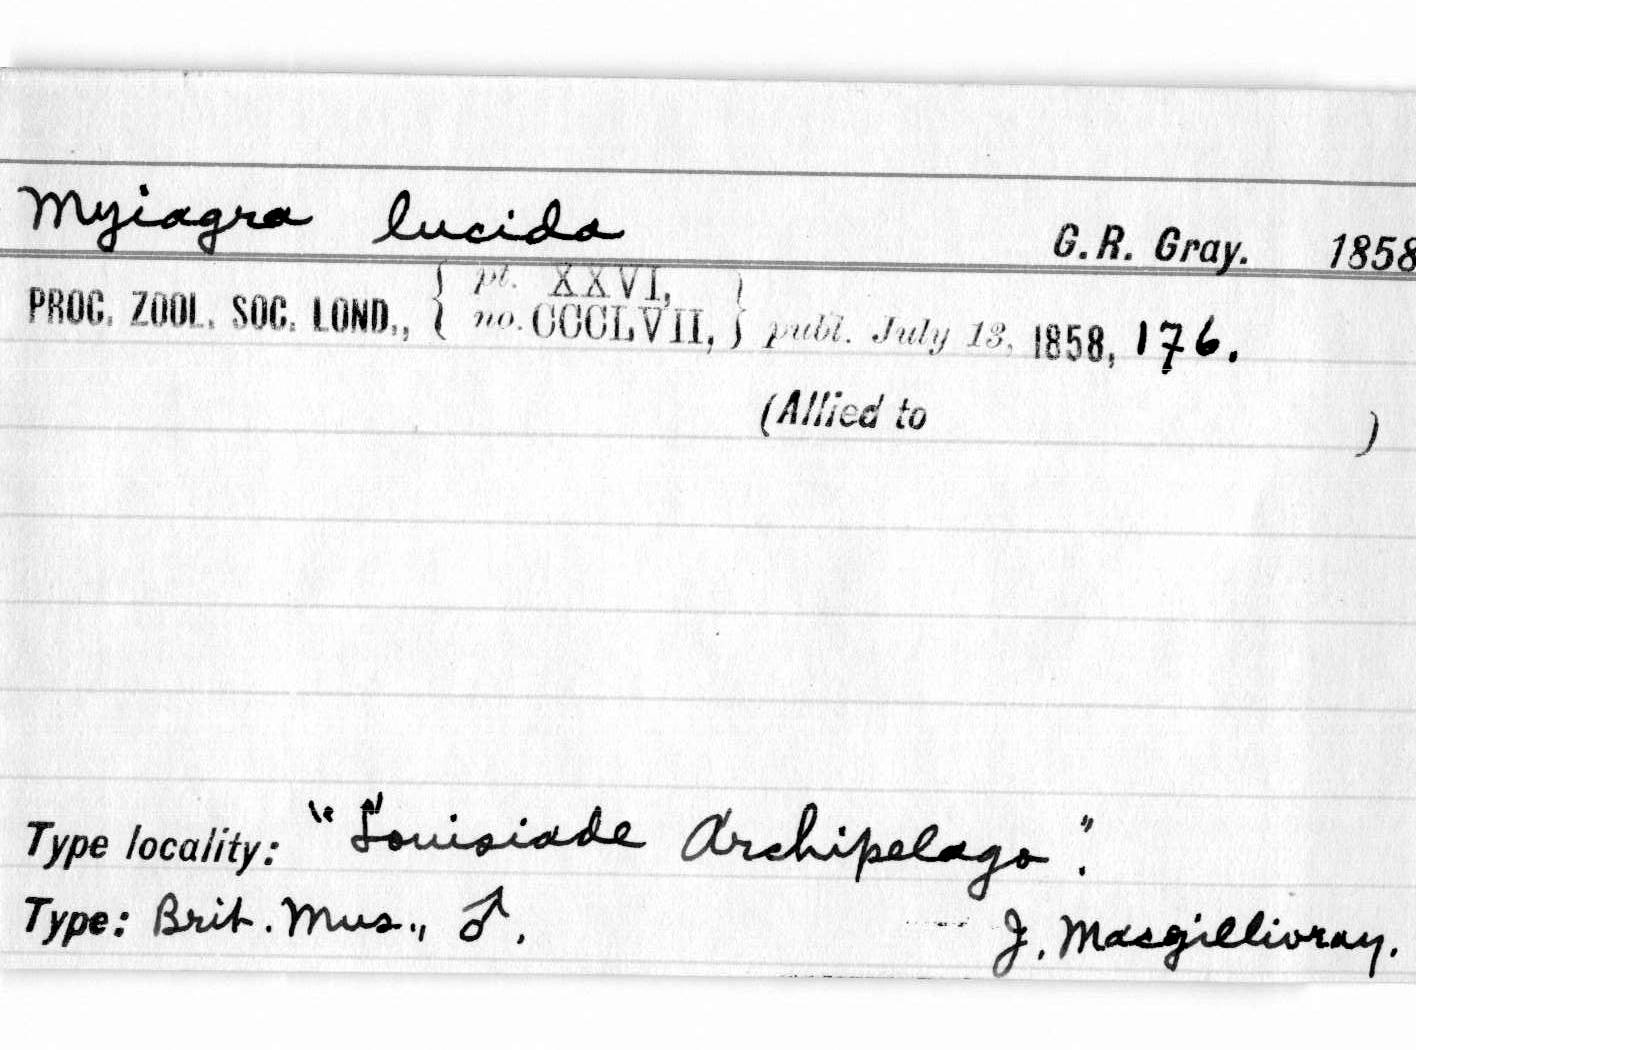 Myiagra lucida G.R. Gray. 1858
PROC. ZOOL. SOC. LOND., { pt. XXVI, no. CCCLVII, } publ. July 13, 1858, 176.
(Allied to )
Type locality: "Louisiade Archipelago".
Type: Brit. Mus., ♂. J. Macgillivray.